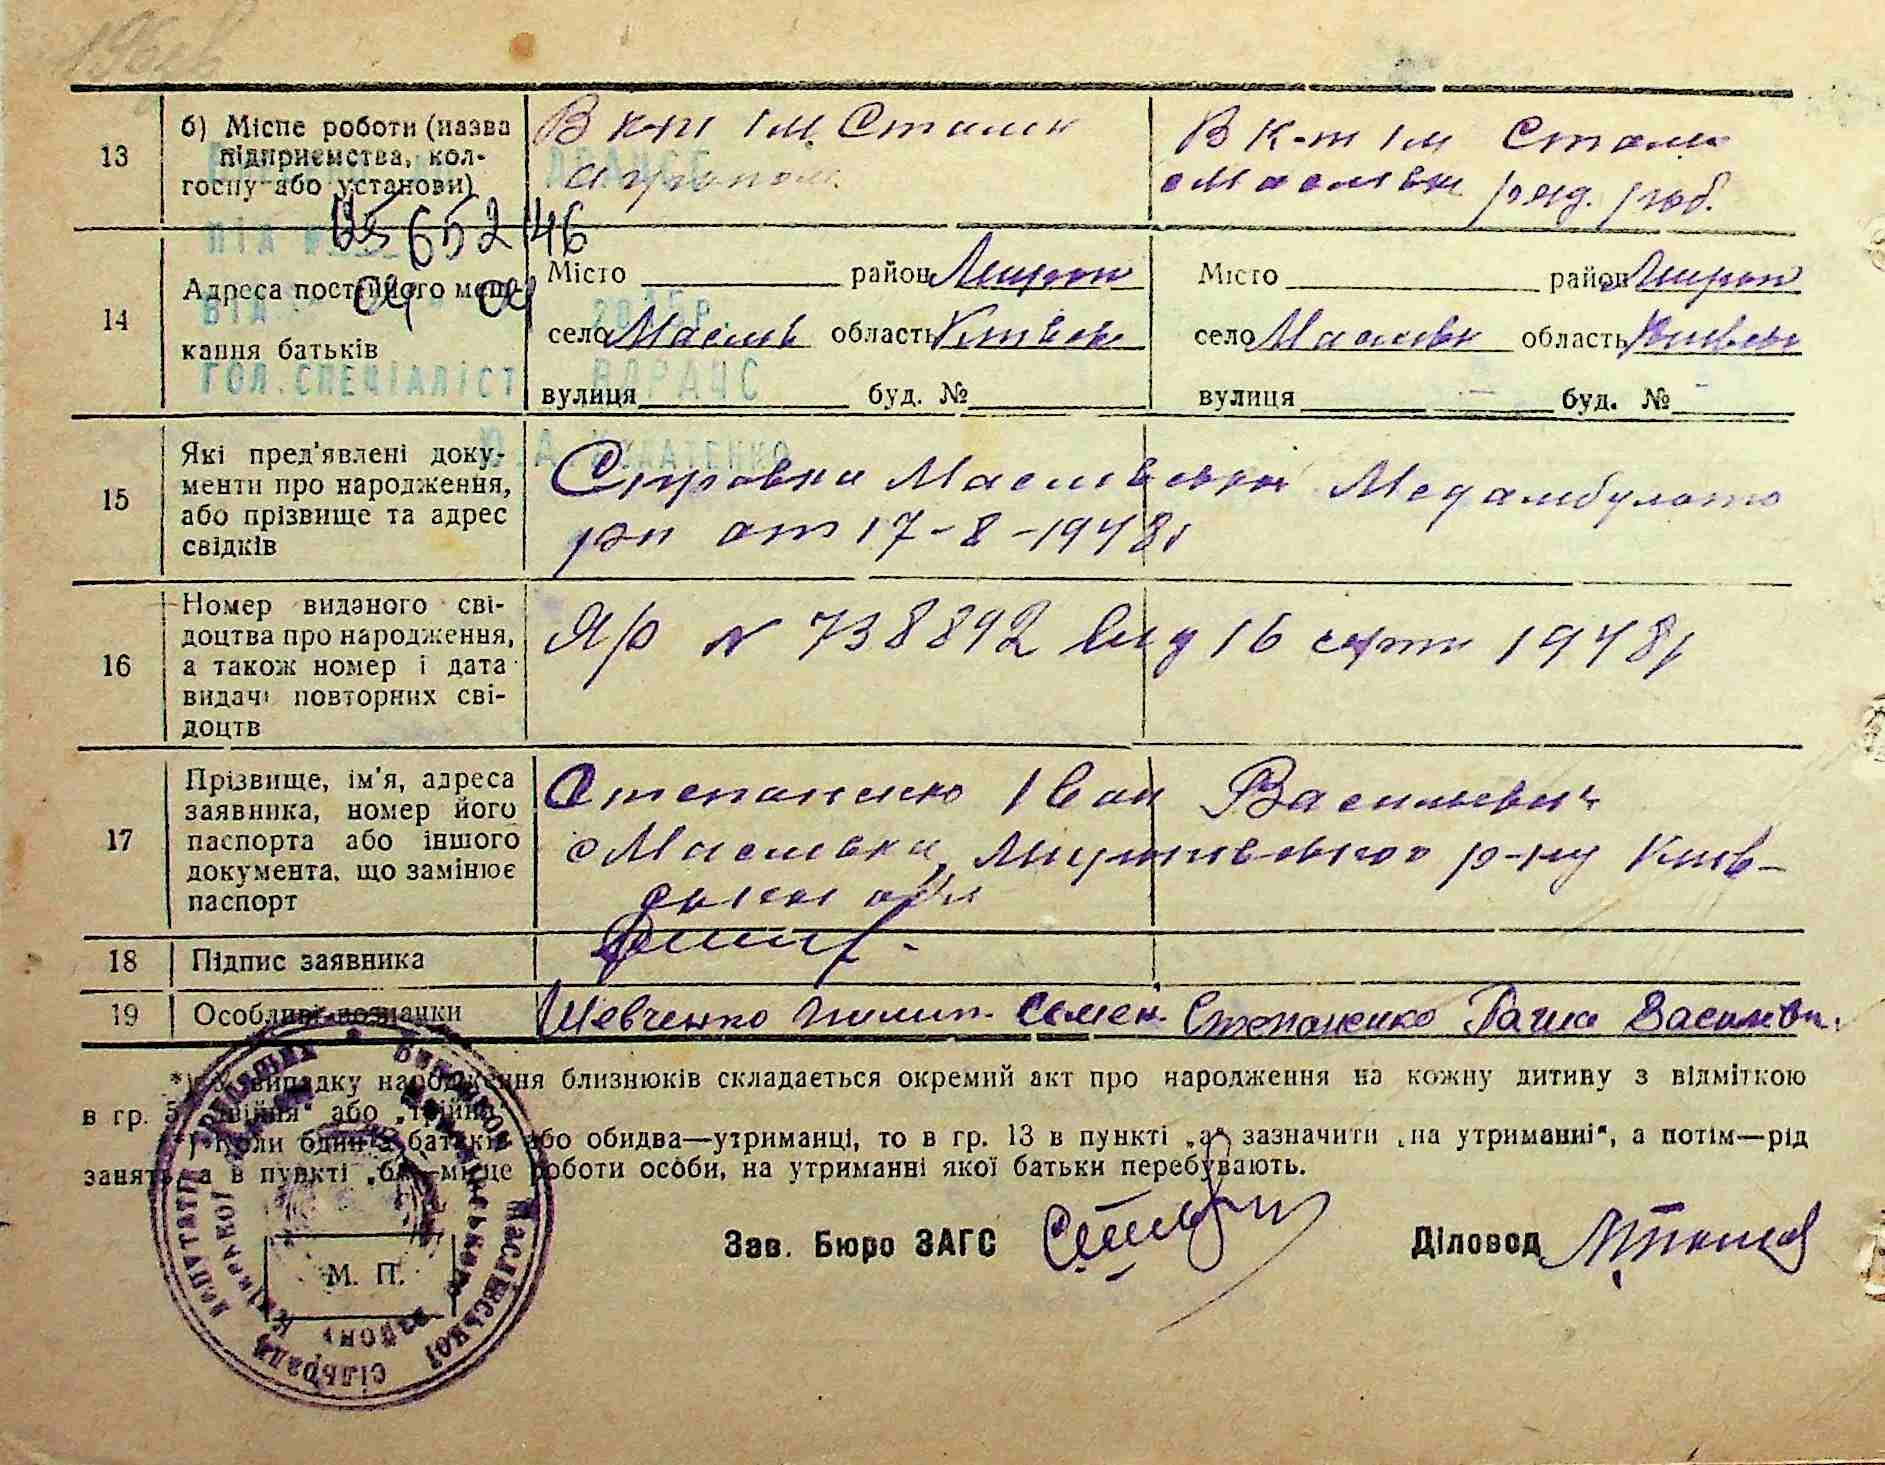 13
б) Місце роботи (назва
підприємства, кол-
госпу або установи)
В к-ті ім Сталін
В к-т ім Сталін
с Маслівки ряд. роб.
14
Адреса постійного меш-
кання батьків
Місто район Мирон
село Маслів область Київськ
вулиця буд. №
Місто район Мирон
село Маслівк область Київськ
вулиця буд. №
ВІД 2015р.
ГОЛ.СПЕЦІАЛІСТ ВДРАЦС
15
Які пред'явлені доку-
менти про народження,
або прізвище та адрес
свідків
Справки Маслівськи Медамбулато
рии от 17-8-1948г
16
Номер виданого сві-
доцтва про народження,
а також номер і дата
видачі повторних сві-
доцтв
ЯР N 738892 від 16 1948р
17
Прізвище, ім'я, адреса
заявника, номер його
паспорта або іншого
документа, що замінює
паспорт
Степаненко Іван Васильевич
с Маслівка, Миронівского р-ну Київ-
18 Підпис заявника
19 Особливі позначки
Шевченко Пилип Семен. Степаненко Гаша Васильвн.
*) У випадку народження близнюків складається окремий акт про народження на кожну дитину з відміткою
в гр. 5 „двійня“ або „трійня“.
*) Коли один з батьків або обидва—утриманці, то в гр. 13 в пункті „а“ зазначити „на утриманні“, а потім—рід
занять, а в пункті „б“—місце роботи особи, на утриманні якої батьки перебувають.
Зав. Бюро ЗАГС
Діловод
М. П.
Маслівської сільради депутатів
району Київської